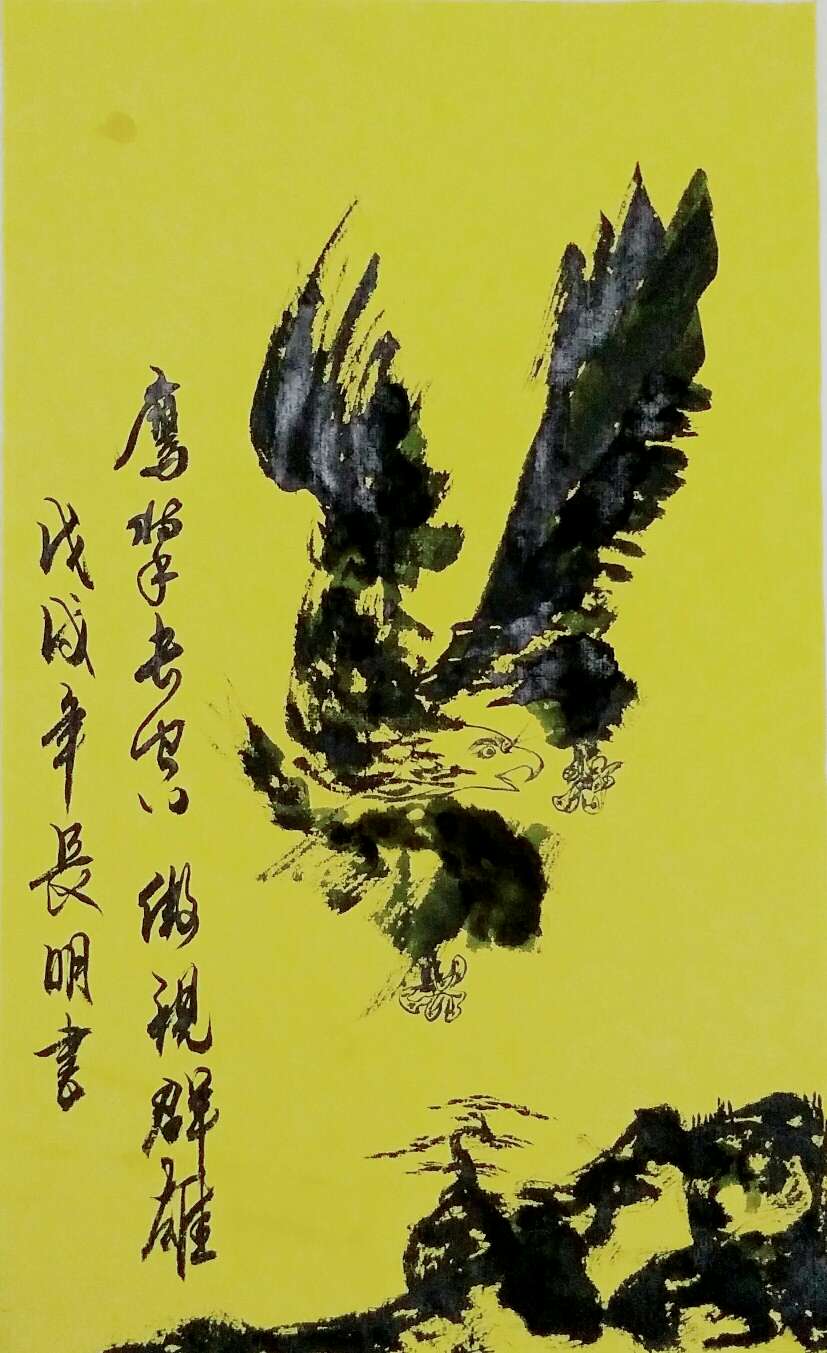 鹰击长空 傲视群雄
戊戌年長明书